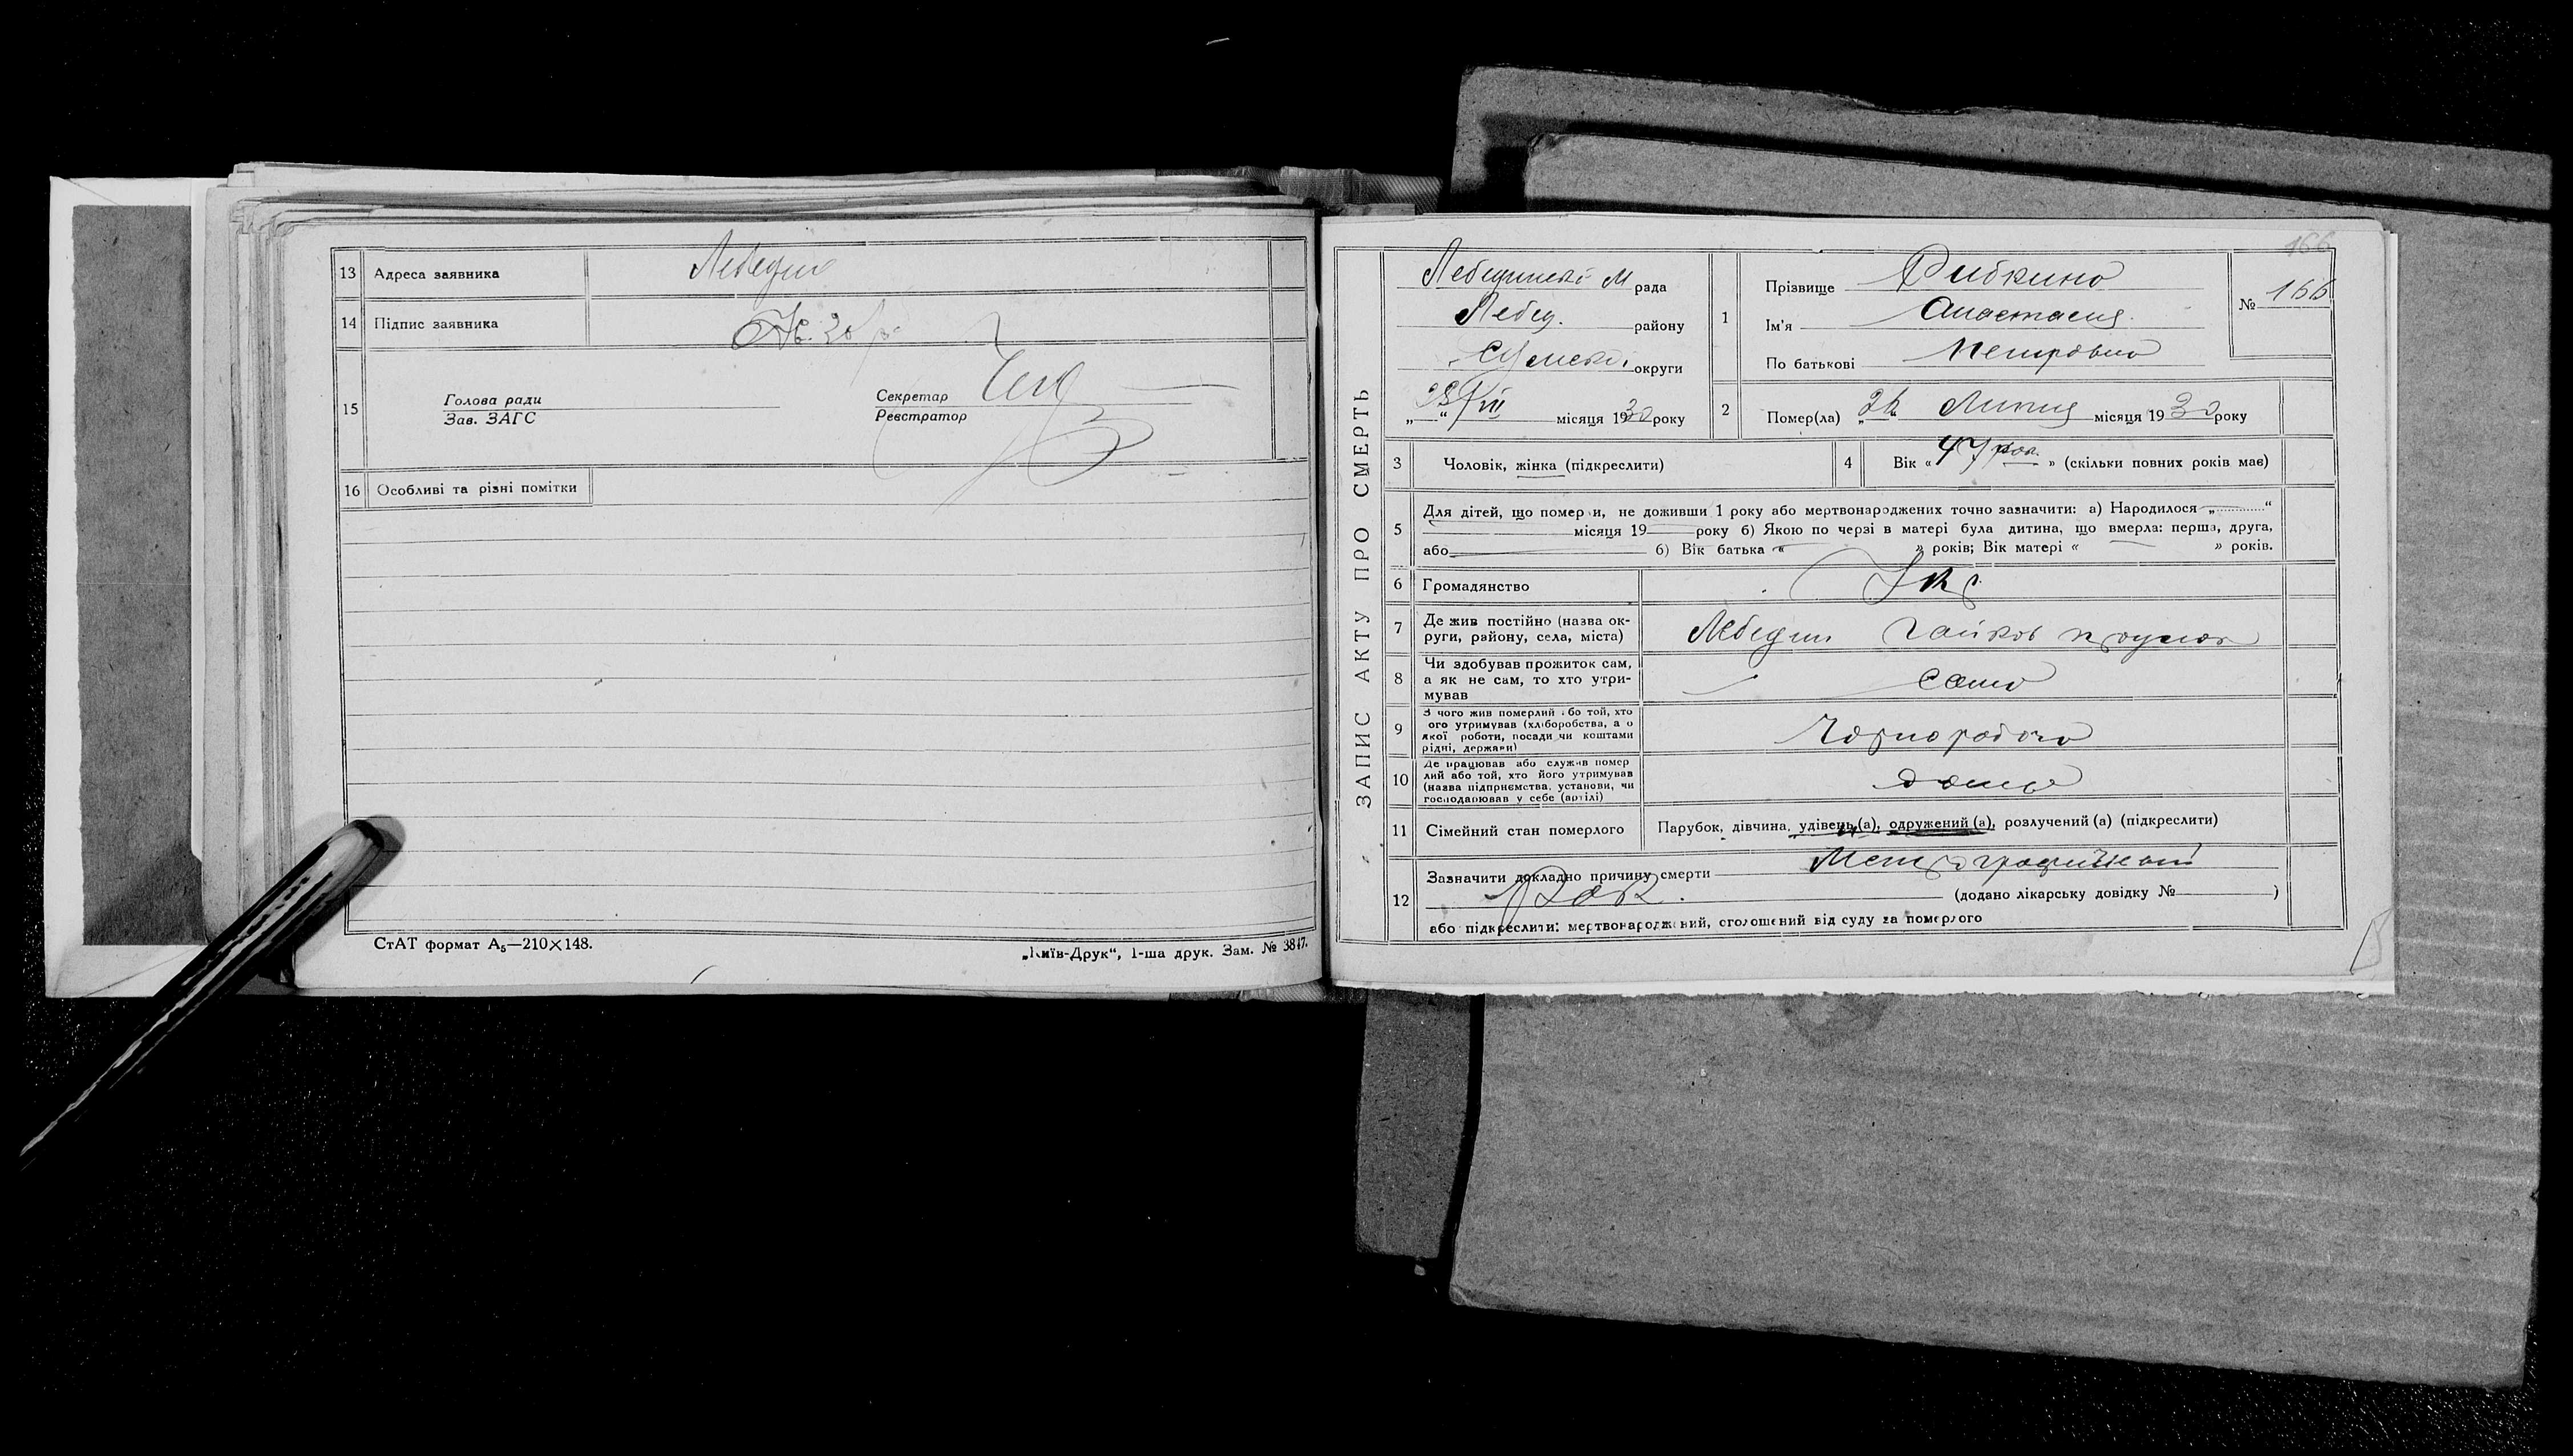 13 Адреса заявника Лебедин
14 Підпис заявника
15 Голова ради
Зав. ЗАГС
Секретар
Реєстратор
16 Особливі та різні помітки
СтАТ формат А5—210×148.
„Київ-Друк“, 1-ша друк. Зам. № 3847.
ЗАПИС АКТУ ПРО СМЕРТЬ
166
Лебединськ М рада
Лебед. району
Сумськ. округи
„ “ VII місяця 1930 року
1 Прізвище Рибкина
Ім'я Анастасия
По батькові Петровна
№ 166
2 Помер(ла) „ Липня місяця 1930 року
3 Чоловік, жінка (підкреслити)
4 Вік « 47 рок. » (скільки повних років має)
5 Для дітей, що померли, не доживши 1 року або мертвонароджених точно зазначити: а) Народилося „ “
місяця 19 року б) Якою по черзі в матері була дитина, що вмерла: перша, друга,
або б) Вік батька « » років; Вік матері « » років.
6 Громадянство Укр
7 Де жив постійно (назва ок-
руги, району, села, міста) Лебедин
8 Чи здобував прожиток сам,
а як не сам, то хто утри-
мував сама
9 З чого жив померлий або той, хто
ого утримував (хліборобства, а о
якої роботи, посади чи коштами
рідні, держави) Чорнороб
10 Де працював або служив помер
лий або той, хто його утримував
(назва підприємства, установи, чи
господарював у себе (артілі) дома
11 Сімейний стан померлого Парубок, дівчина, удівець (а), одружений (а), розлучений (а) (підкреслити)
12 Зазначити докладно причину смерти
Рак. (додано лікарську довідку № )
або підкреслити: мертвонароджений, оголошений від суду за померлого